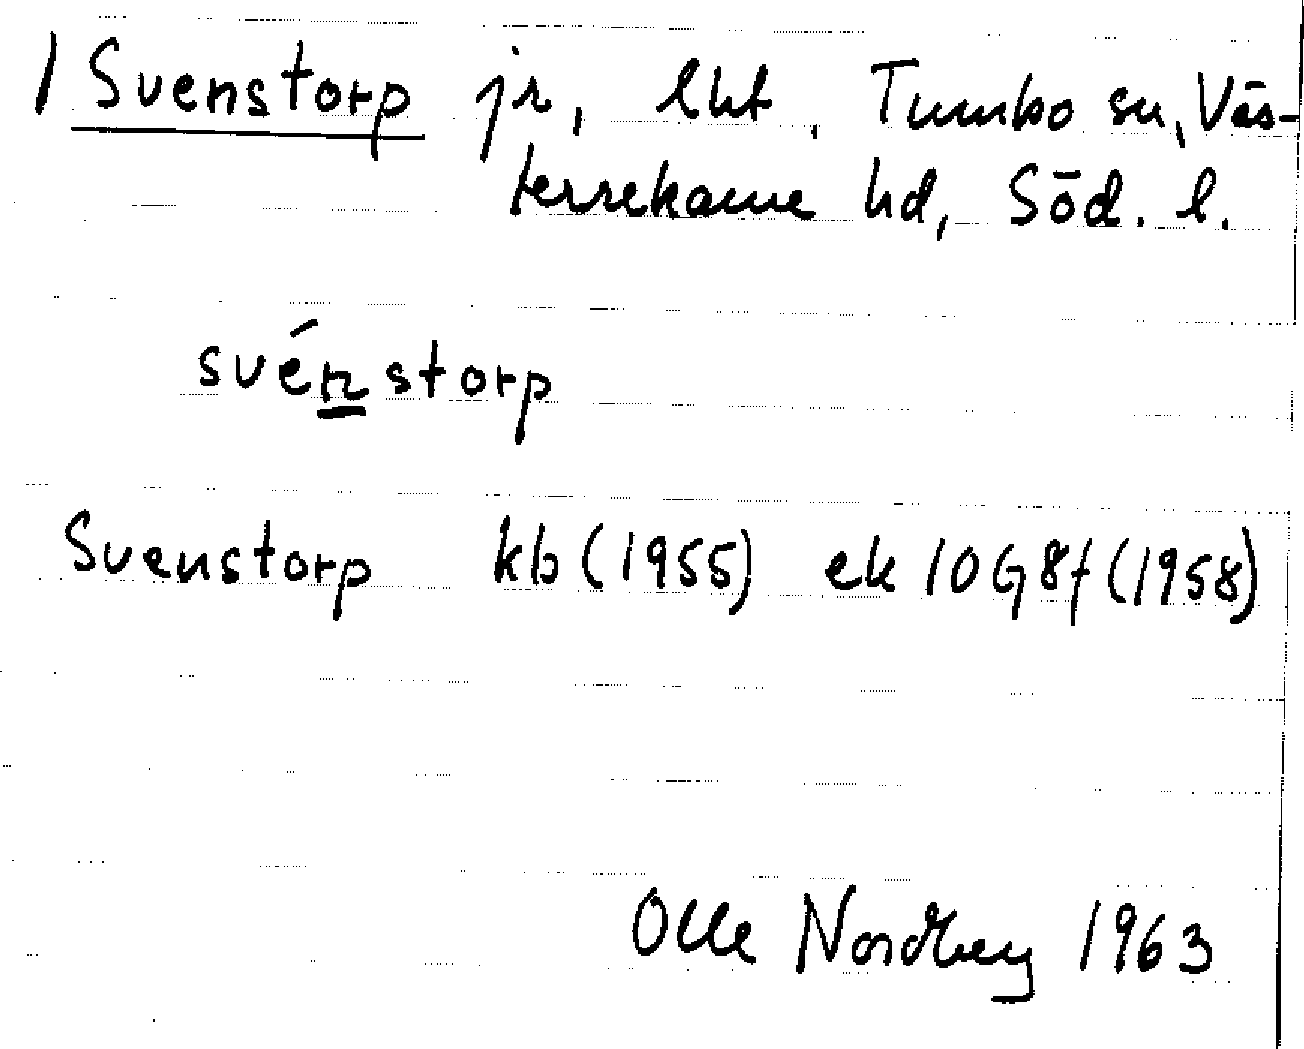 / Svenstorp jr, lht. Tumbo sn, Väs-
terrekarne hd, Söd. l.
svénstorp
Svenstorp kb (1955) ek 10G8f (1958)
Olle Nordberg 1963